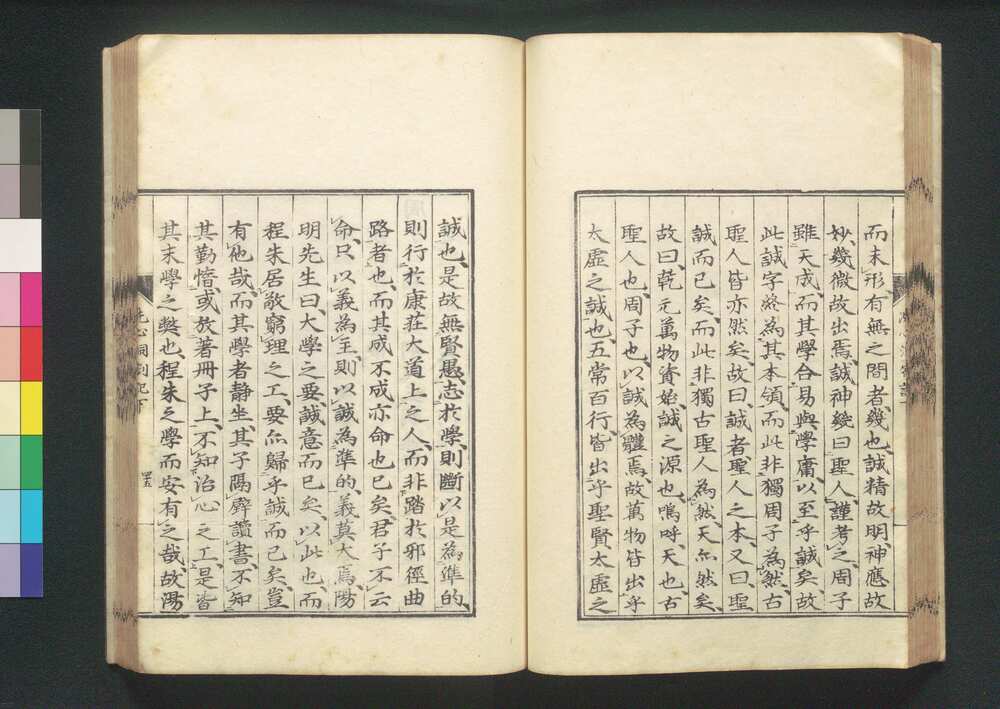 而未形有無之間者幾也誠精故明神應故
妙幾微故出焉誠神幾曰聖人謹考之周子
雖天成而其學合易與學庸以至乎誠矣故
此誠字終為其本領而此非獨周子為然古
聖人皆亦然矣故曰誠者聖人之本又曰聖
誠而已矣而此非獨古聖人為然天亦然矣
故曰乾元萬物資始誠之源也嗚呼天也古
聖人也周子也以誠為體焉故萬物皆出乎
太虛之誠也五常百行皆出乎聖賢太虛之
誠也是故無賢愚志於學則斷以是為準的
則行於康莊大道上之人而非踏於邪徑曲
路者也而其成不成亦命也已矣君子不云
命只以義為主則以誠為準的義莫大焉陽
明先生曰大學之要誠意而已矣以此也而
程朱居敬窮理之工要亦歸乎誠而已矣豈
有他哉而其學者靜坐其子隔壁讀書不知
其勤惰或放著冊子上不知治心之工是皆
其末學之獘也程朱之學而安有之哉故湯
洗心洞劄記下
四五